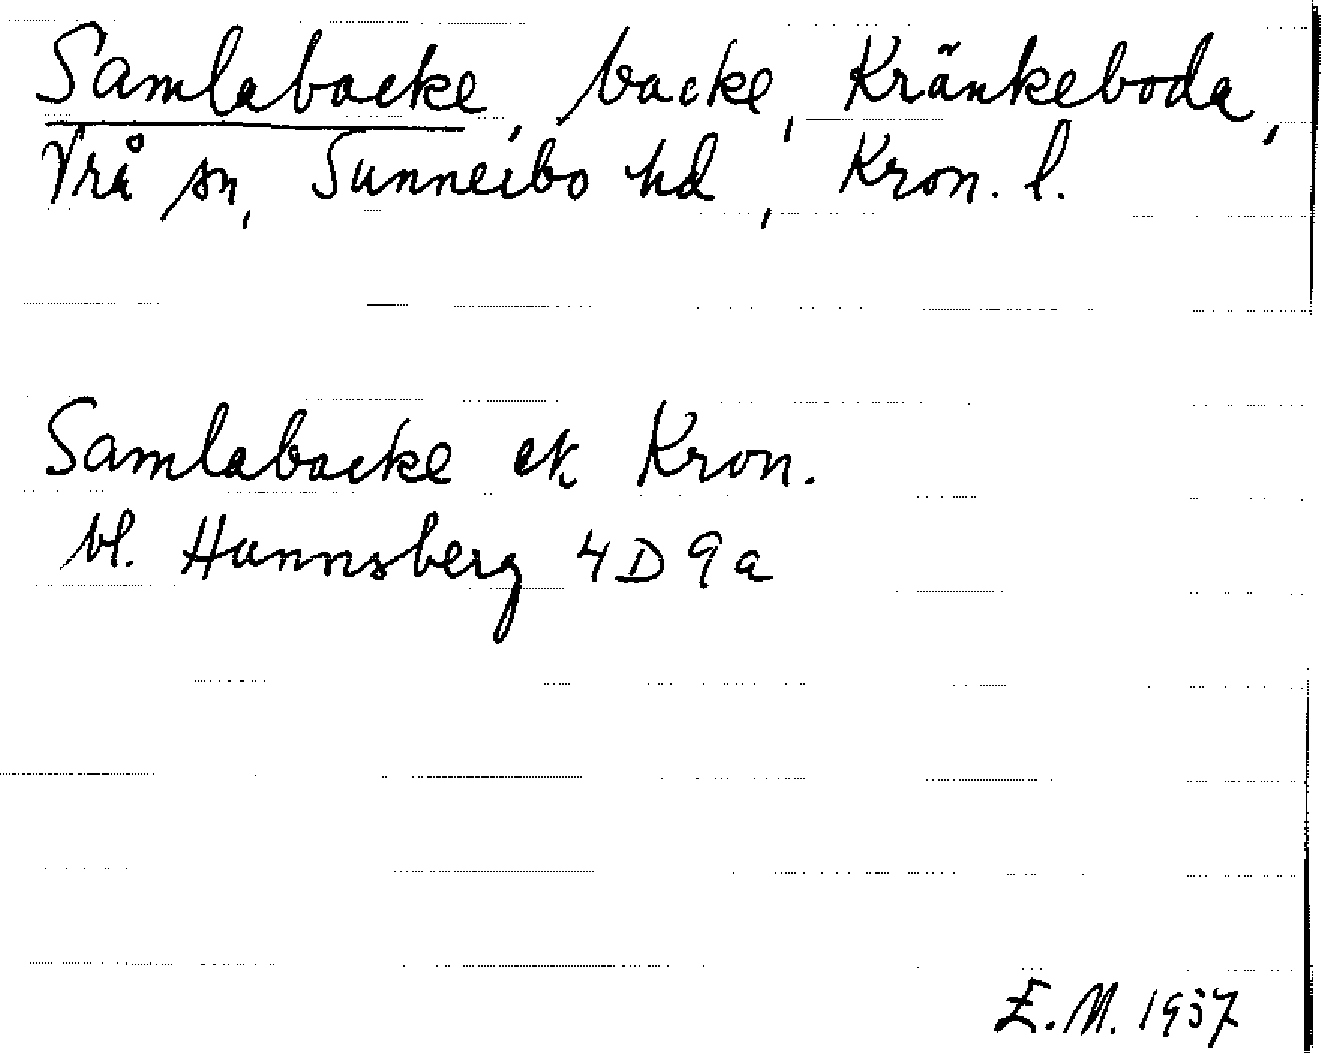 Samlabacke, backe, Kränkeboda,
Vrå sn, Sunnerbo hd, Kron. l.
Samlabacke ek Kron.
bl. Hannsberg 4D 9a
E.M. 1957